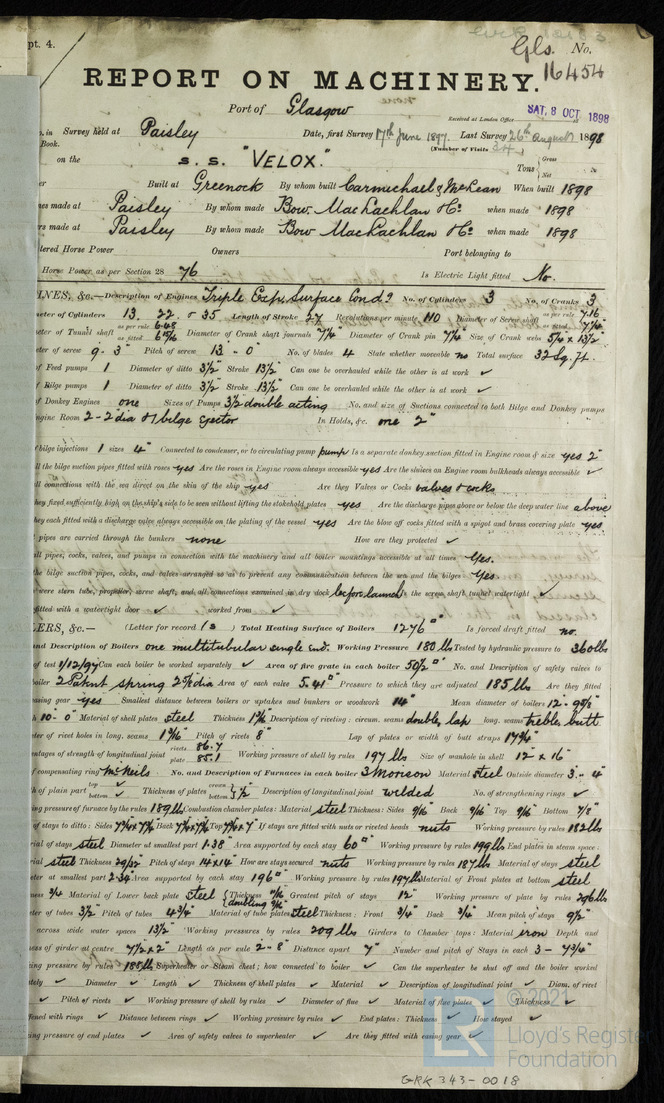 pt. 4.
Gls. No.
16454
REPORT ON MACHINERY.
Port of Glasgow
Received at London Office SAT. 8 OCT 1898
o. in Survey held at Paisley Date, first Survey 17th June 1897 Last Survey 26th August 1898
Book. (Number of Visits 34)
on the S.S. "VELOX." Tons Gross Net
Built at Greenock By whom built Carmichael & McLean When built 1898
nes made at Paisley By whom made Bow, MacLachlan & Co when made 1898
rs made at Paisley By whom made Bow MacLachlan & Co when made 1898
tered Horse Power Owners Port belonging to
Horse Power as per Section 28 76 Is Electric Light fitted No.
INES, &c.— Description of Engines Triple Exp. Surface Cond? No. of Cylinders 3 No. of Cranks 3
eter of Cylinders 13. 22. & 35 Length of Stroke 27 Revolutions per minute 110 Diameter of Screw shaft as per rule 7.16 as fitted 7 1/4"
eter of Tunnel shaft as per rule 6.48 as fitted Diameter of Crank shaft journals 7 1/4" Diameter of Crank pin 7 1/4" Size of Crank webs 5 1/4 x 13 1/2"
eter of screw 9. 3" Pitch of screw 13 - 0" No. of blades 4 State whether moveable no Total surface 32 Sq. ft.
of Feed pumps 1 Diameter of ditto 3 1/2" Stroke 13 1/2" Can one be overhauled while the other is at work ✓
of Bilge pumps 1 Diameter of ditto 3 1/2" Stroke 13 1/2" Can one be overhauled while the other is at work ✓
of Donkey Engines one Sizes of Pumps 3 1/2 double acting No. and size of Suctions connected to both Bilge and Donkey pumps
ngine Room 2 - 2" dia & bilge ejector In Holds, &c. one 2"
f bilge injections 1 sizes 4" Connected to condenser, or to circulating pump pump Is a separate donkey suction fitted in Engine room & size yes 2"
ll the bilge suction pipes fitted with roses yes Are the roses in Engine room always accessible yes Are the sluices on Engine room bulkheads always accessible ✓
ll connections with the sea direct on the skin of the ship yes Are they Valves or Cocks valves & cocks
they fixed sufficiently high on the ship's side to be seen without lifting the stokehold plates yes Are the discharge pipes above or below the deep water line above
they each fitted with a discharge valve always accessible on the plating of the vessel yes Are the blow off cocks fitted with a spigot and brass covering plate yes
pipes are carried through the bunkers none How are they protected ✓
all pipes, cocks, valves, and pumps in connection with the machinery and all boiler mountings accessible at all times Yes.
the bilge suction pipes, cocks, and valves arranged so as to prevent any communication between the sea and the bilges Yes
were stern tube, propeller, screw shaft, and all connections examined in dry dock before launch Is the screw shaft tunnel watertight ✓
fitted with a watertight door ✓ worked from ✓
LERS, &c.— (Letter for record (S) Total Heating Surface of Boilers 1276 □" Is forced draft fitted no.
and Description of Boilers one multitubular single end. Working Pressure 180 lbs Tested by hydraulic pressure to 360 lbs
of test 1/12/97 Can each boiler be worked separately ✓ Area of fire grate in each boiler 50 1/2 □" No. and Description of safety valves to
boiler 2 Patent spring 2 5/8 dia Area of each valve 5.41 □" Pressure to which they are adjusted 185 lbs Are they fitted
easing gear yes Smallest distance between boilers or uptakes and bunkers or woodwork 14" Mean diameter of boilers 12 - 9 5/8"
h 10 - 0" Material of shell plates steel Thickness Description of riveting: circum. seams double, lap long. seams treble, butt
eter of rivet holes in long. seams Pitch of rivets 8" Lap of plates or width of butt straps 17 3/4"
entages of strength of longitudinal joint rivets 86.7 plate 85.1 Working pressure of shell by rules 197 lbs Size of manhole in shell 12" x 16"
f compensating ring McNeils No. and Description of Furnaces in each boiler 3 Morison Material steel Outside diameter 3 - 4"
h of plain part top ✓ bottom ✓ Thickness of plates crown bottom 1/2" Description of longitudinal joint welded No. of strengthening rings ✓
ing pressure of furnace by the rules 189 lbs Combustion chamber plates: Material steel Thickness: Sides 9/16" Back 9/16" Top 9/16" Bottom 7/8"
of stays to ditto: Sides Back Top If stays are fitted with nuts or riveted heads nuts Working pressure by rules 182 lbs
rial of stays steel Diameter at smallest part 1.38 Area supported by each stay 60 □" Working pressure by rules 199 lbs End plates in steam space:
rial steel Thickness 29/32" Pitch of stays 14 x 14" How are stays secured nuts Working pressure by rules 187 lbs Material of stays steel
eter at smallest part 2.34" Area supported by each stay 196 □" Working pressure by rules 197 lbs Material of Front plates at bottom steel
ness 3/4 Material of Lower back plate steel Thickness doubling 9/16" Greatest pitch of stays 12" Working pressure of plate by rules 296 lbs
eter of tubes 3 1/2 Pitch of tubes 4 3/4" Material of tube plates steel Thickness: Front 3/4" Back 3/4" Mean pitch of stays 9 1/2"
across wide water spaces 13 1/2" Working pressures by rules 209 lbs Girders to Chamber tops: Material iron Depth and
ness of girder at centre 7 1/2 x 2" Length as per rule 2 - 8" Distance apart 7" Number and pitch of Stays in each 3 - 7 3/4"
ing pressure by rules 188 lbs Superheater or Steam chest; how connected to boiler ✓ Can the superheater be shut off and the boiler worked
ately ✓ Diameter ✓ Length ✓ Thickness of shell plates ✓ Material ✓ Description of longitudinal joint ✓ Diam. of rivet
✓ Pitch of rivets ✓ Working pressure of shell by rules ✓ Diameter of flue ✓ Material of flue plates ✓ Thickness ✓
fened with rings ✓ Distance between rings ✓ Working pressure by rules ✓ End plates: Thickness ✓ How stayed ✓
ing pressure of end plates ✓ Area of safety valves to superheater ✓ Are they fitted with easing gear ✓
© 2021
LR
Lloyd's Register
Foundation
GRK 343-0018